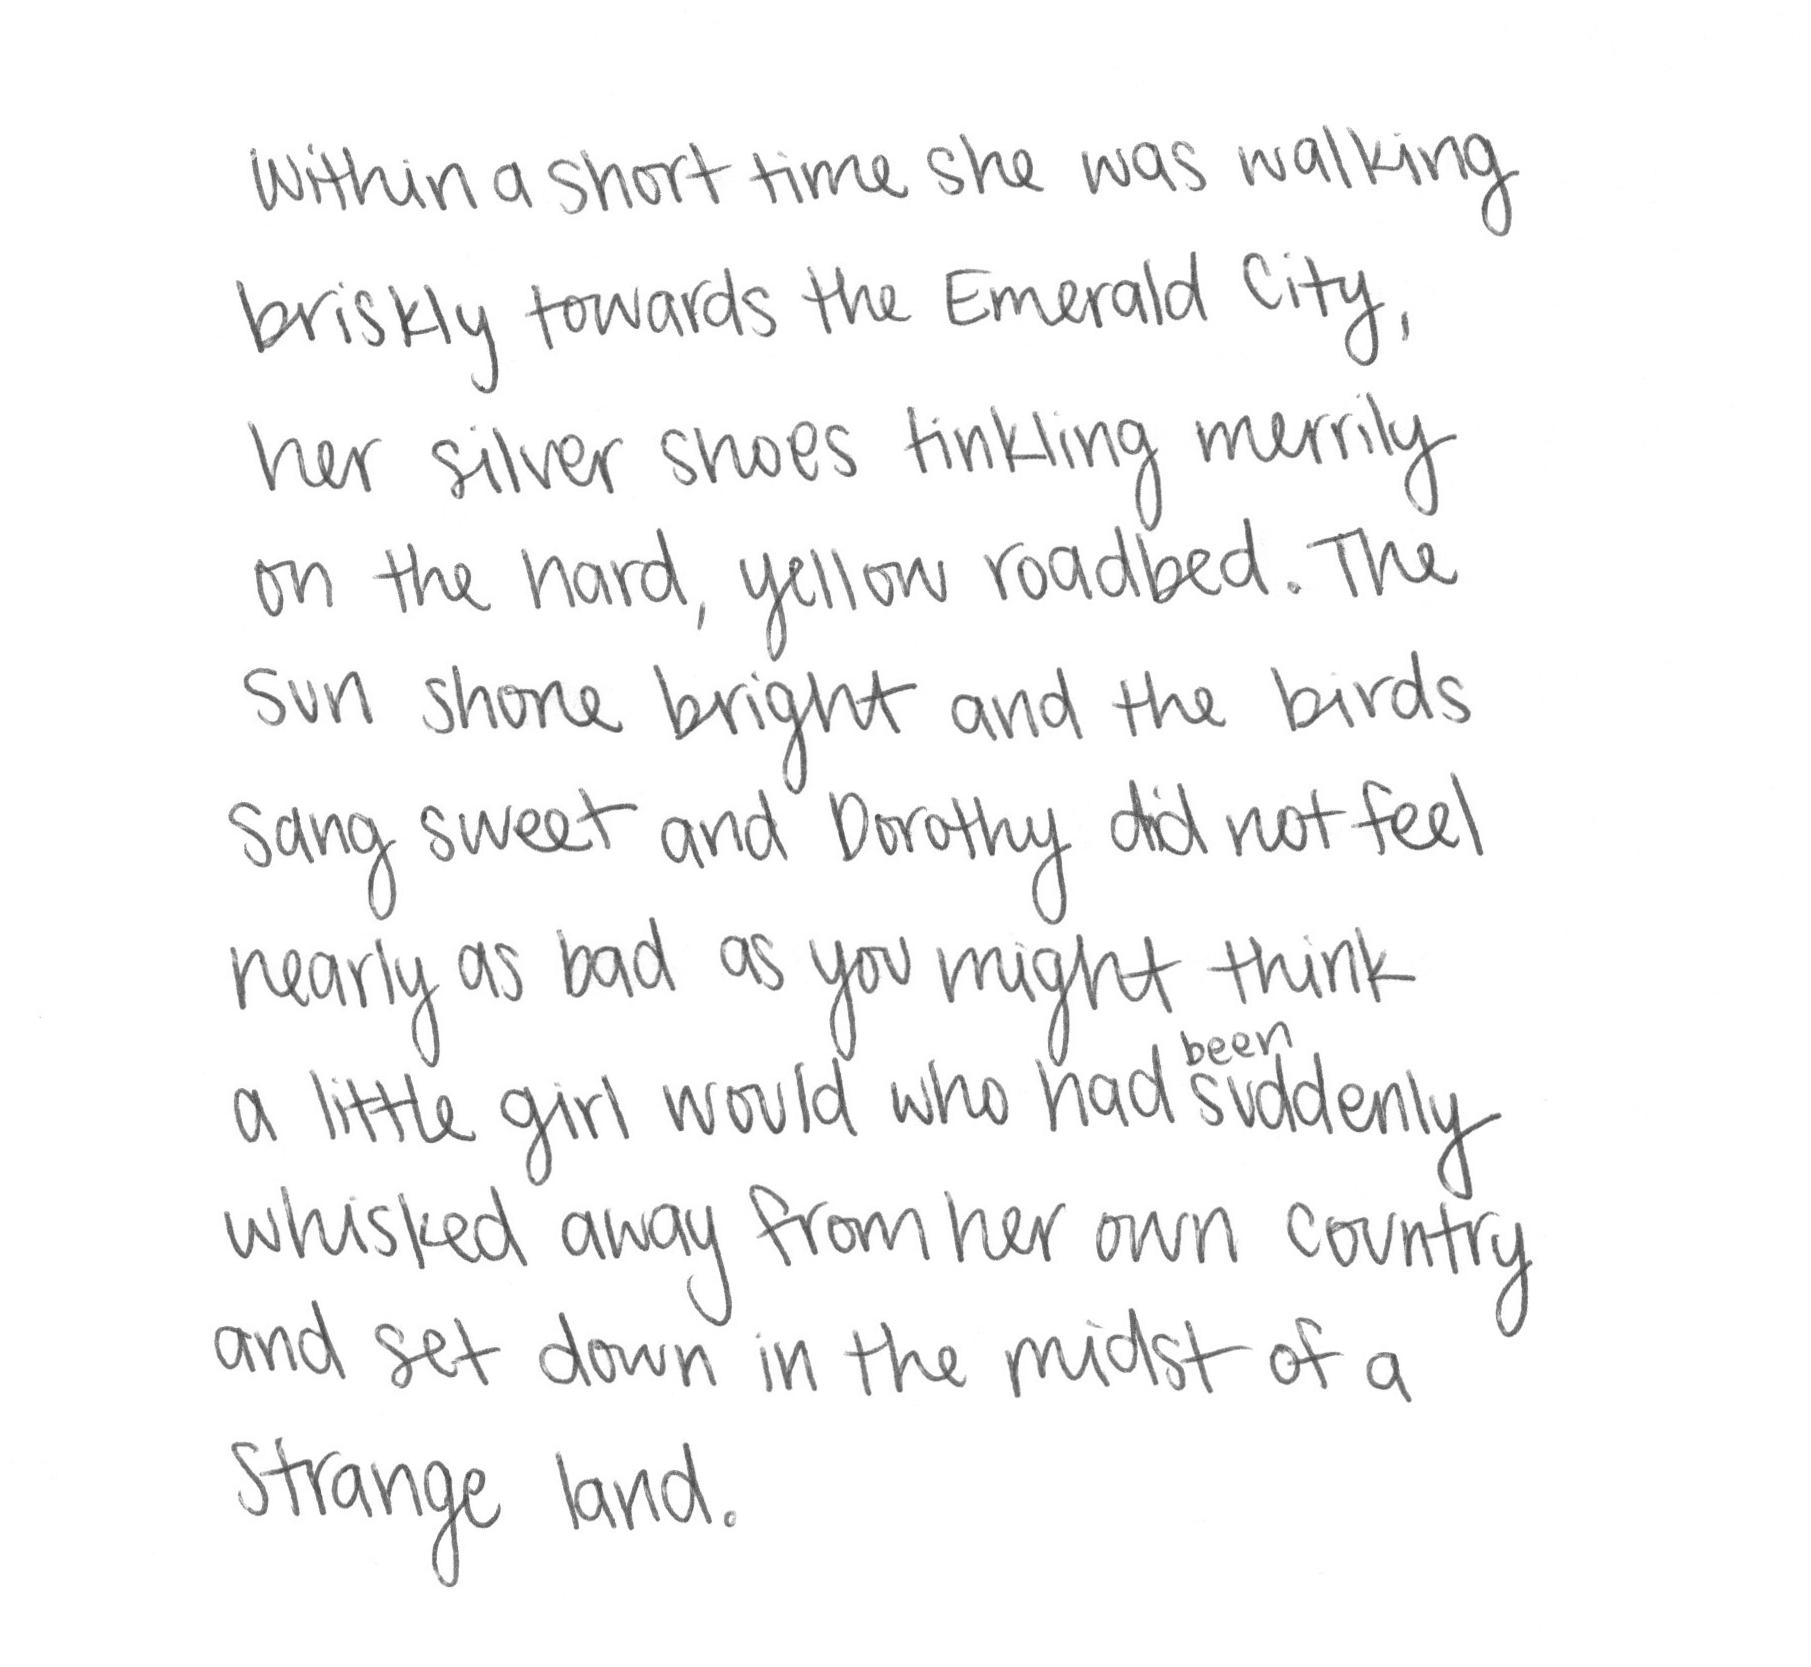 Within a short time she was walking
briskly towards the Emerald City,
her silver shoes tinkling merrily
on the hard, yellow roadbed. The
sun shone bright and the birds
sang sweet and Dorothy did not feel
nearly as bad as you might think
a little girl would who had been suddenly
whisked away from her own country
and set down in the midst of a
strange land.